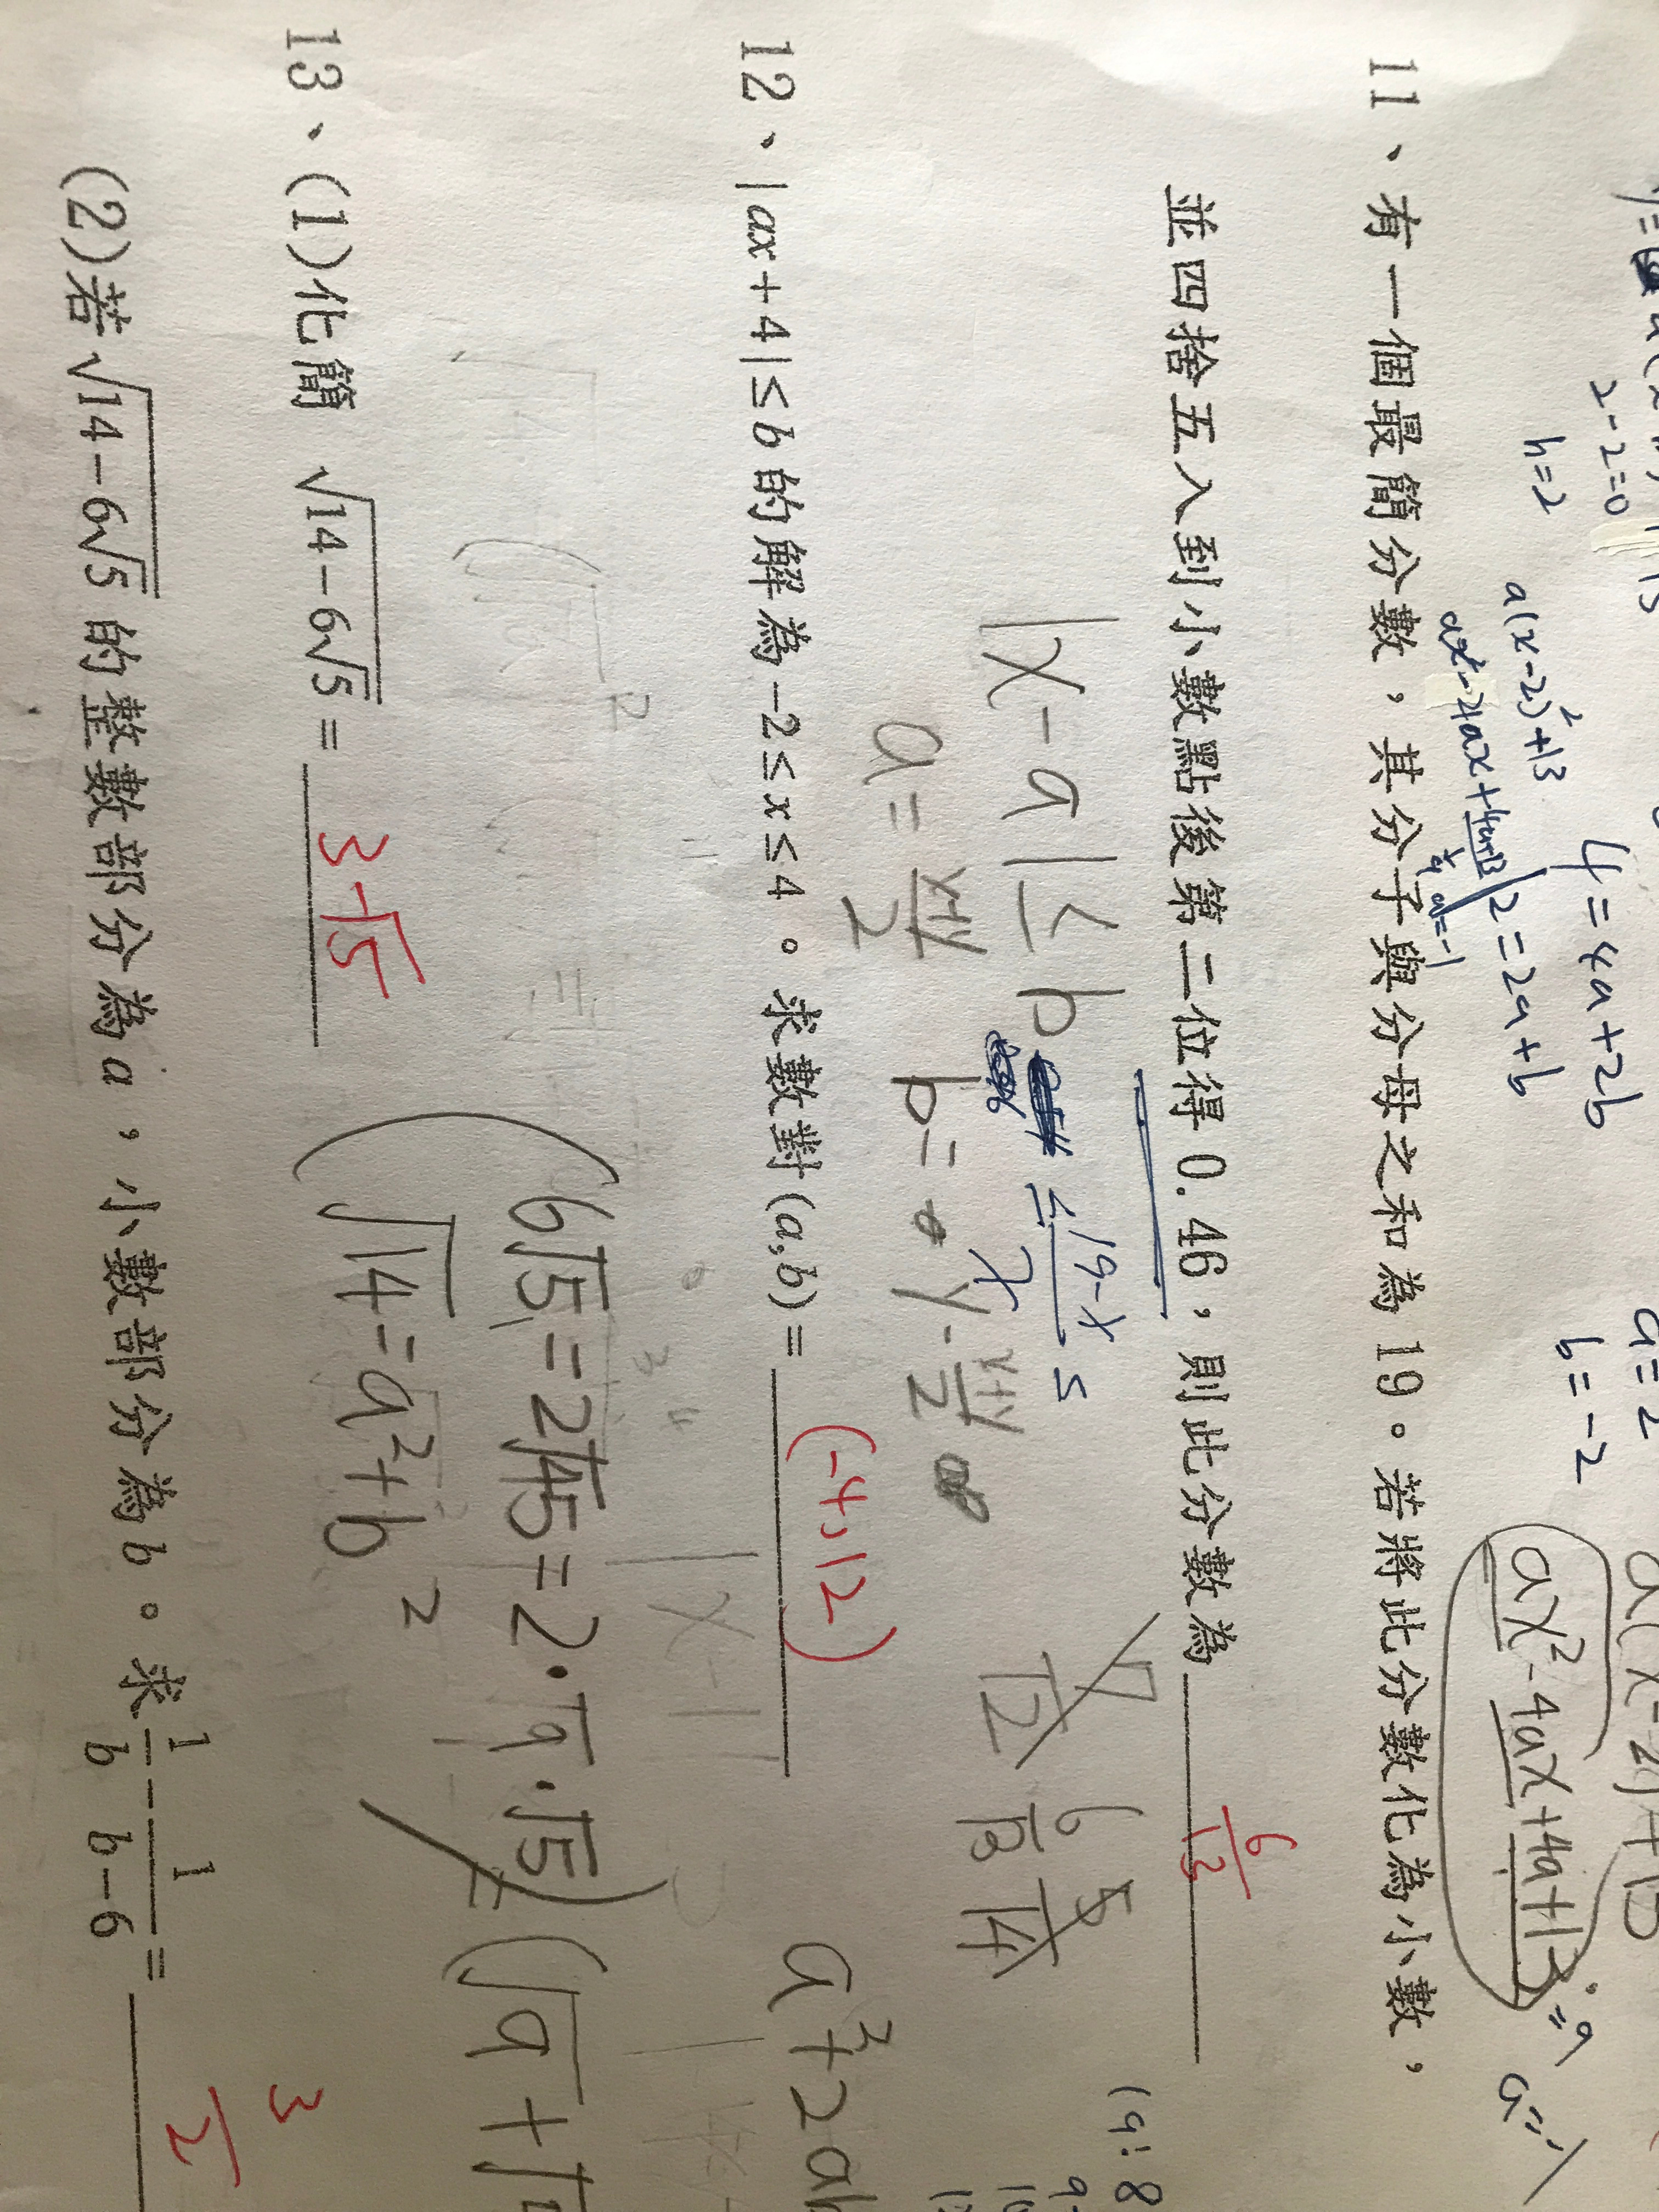 2-2=0
h=2
a(x-2)²+13
4=4a+2b
2=2a+b
a=2
b=-2
ax²-4ax+4a+13=9
a=-1
11、有一個最簡分數，其分子與分母之和為 19。若將此分數化為小數，
並四捨五入到小數點後第二位得 0.46，則此分數為 6/13
|x-a|≤b
≤ 19-x/x ≤
7/12 6/13 5/14
a= x+y/2 b= y- x+y/2
12、|ax+4|≤b 的解為 -2≤x≤4。求數對(a,b)= (-4,12)
a²+2ab
13、(1)化簡 √(14-6√5) = 3-√5
(6√5=2√45=2·√9·√5)
√14=a²+b²
(√a+√
(2)若√(14-6√5) 的整數部分為a，小數部分為b。求 1/b - 1/(b-6) = 3/2